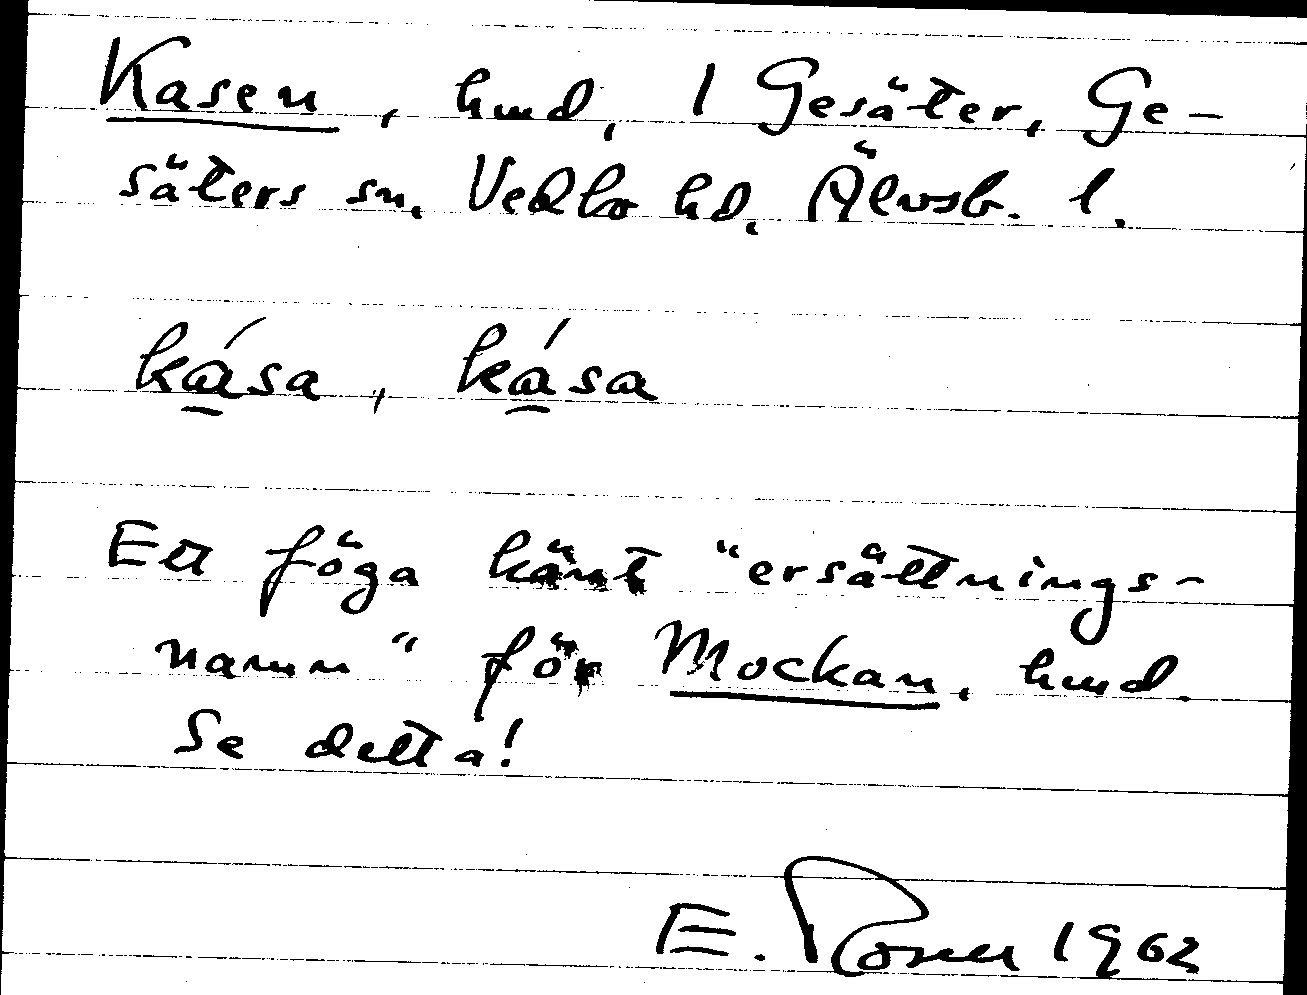 Kasen, hmd, 1 Gesäter, Ge-
säters sn. Vedbo hd. Älvsb. l.
ká̱sa, ká̱sa
Ett föga känt "ersättnings-
namn" för Mockan, hmd.
Se detta!
E. Rosell 1962